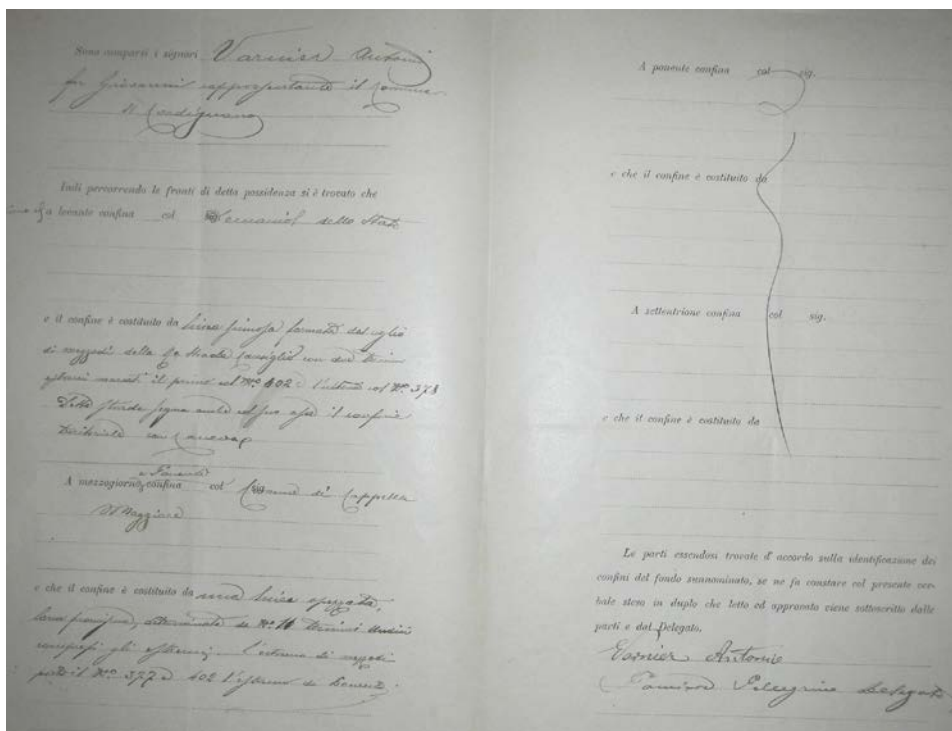 Sono comparsi i signori Varnier Antonio
fu Giovanni rappresentante il Comune
di Cordignano
Indi percorrendo le fronti di detta possidenza si è trovato che
a levante confina col Demanio dello Stato
e il confine è costituito da linea sinuosa formata dal ciglio
di mezzodì della strada Cansiglio con due termini
estremi marcati il primo col Nº 402 e l'ultimo col Nº 378
Detta strada segna anche nel suo asse il confine
territoriale con Caneva
e Ponente
A mezzogiorno confina col sig. Comune di Cappella
Maggiore
e che il confine è costituito da una linea spezzata,
determinata da Nº 11 termini
compresi gli estremi, l'estremo di mezzodì
porta il Nº 377 e 402 l'estremo di Ponente
A ponente confina col sig.
e che il confine è costituito da
A settentrione confina col sig.
e che il confine è costituito da
Le parti essendosi trovate d'accordo sulla identificazione dei
confini del fondo sunnominato, se ne fa constare col presente ver-
bale steso in duplo che letto ed approvato viene sottoscritto dalle
parti e dal Delegato.
Varnier Antonio
Pellegrino Delegato